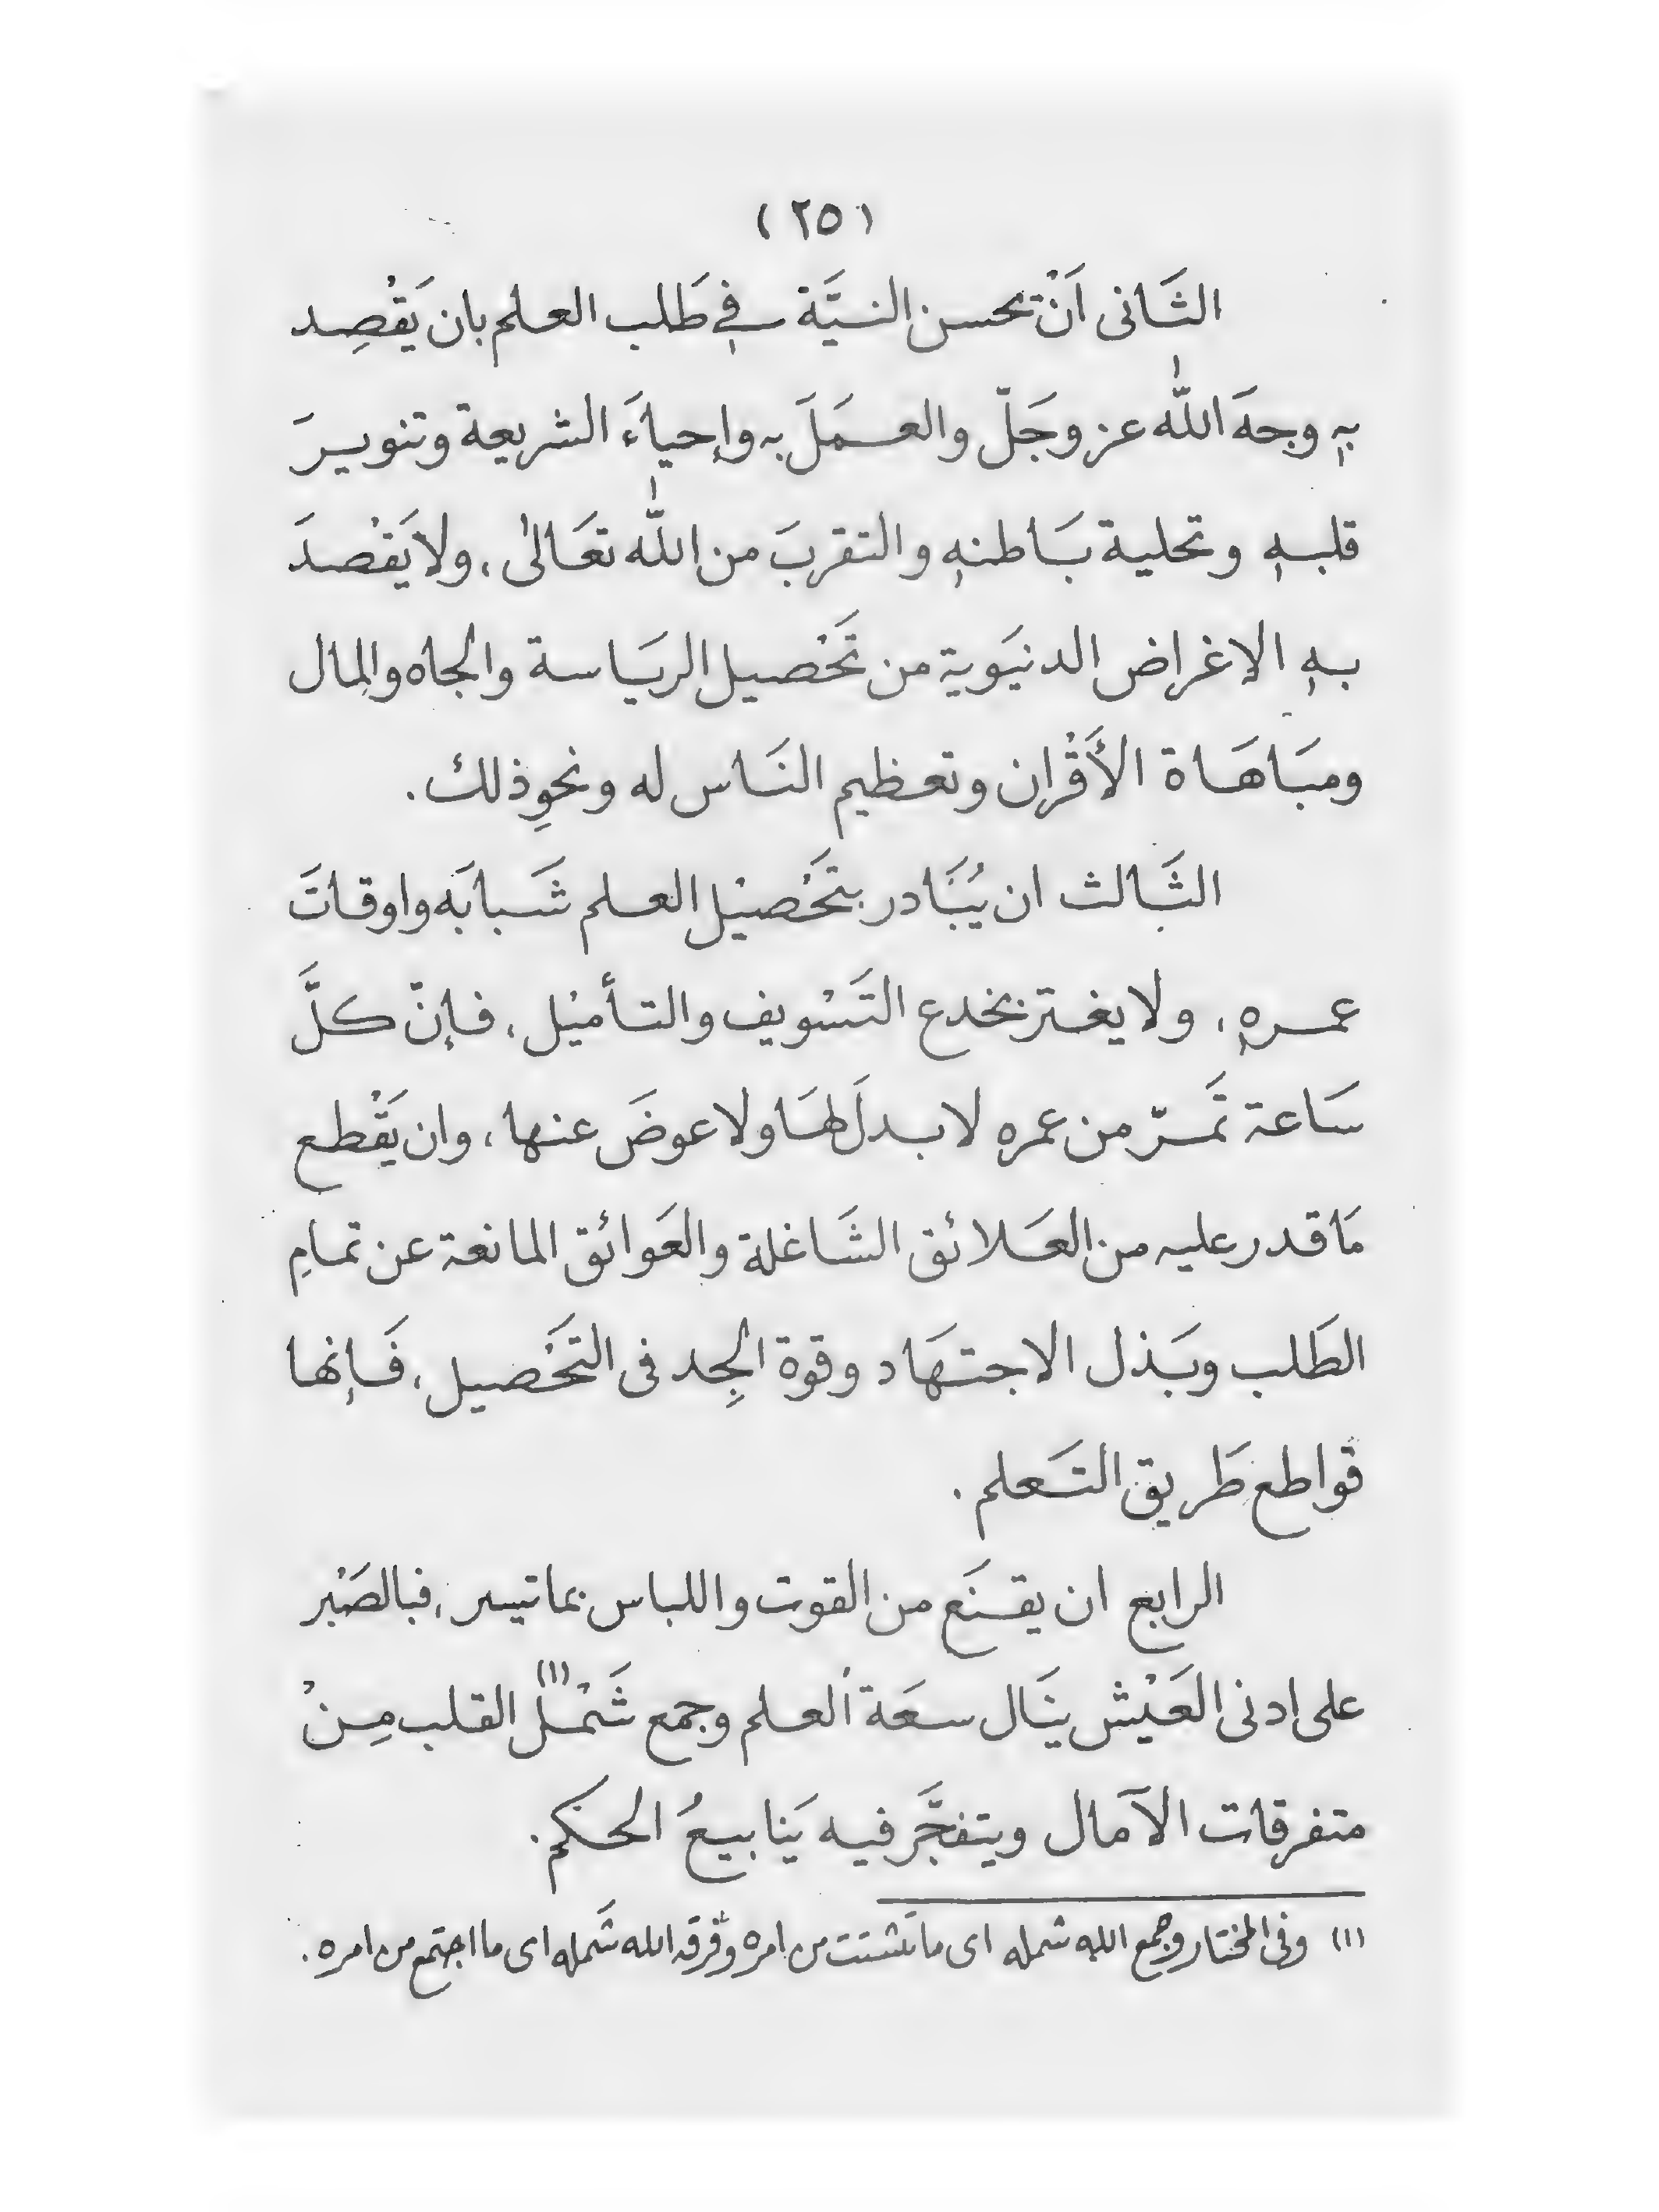 (٢٥)
الثَّانى اَنْ تحسن النيَّة فى طَلب العلم بان يَقْصِد
بهٖ وجهَ اللّٰه عز وجَلّ والعمَلَ به وإحياءَ الشريعة وتنويرَ
قلبهٖ وتحلية بَاطنهٖ والتقربَ من اللّٰه تعَالىٰ، ولا يَقْصدَ
بهٖ الاغراض الدنيَوية من تَحْصيل الريَاسة والجاه والمال
ومبَاهَاة الأَقْران وتعظيم النَاس له ونحوِ ذلك.
الثَالث ان يُبَادر بتَحْصيْل العلم شَبابَه واوقاتَ
عمرهٖ، ولا يغتر بخدع التَسْويف والتأميْل، فإنّ كلَّ
سَاعة تَمرّ من عمره لا بدلَ لهَا ولا عوضَ عنها، وان يَقْطع
مَا قدر عليه من العَلائق الشَاغلة والعَوائق المانعة عن تمامِ
الطَلب وبَذل الاجتهَاد وقوة الجِد فى التَحْصيل، فَإنها
قواطع طَريق التَعلم.
الرابع ان يقنَع من القوت واللباس بما تيسر، فبالصَبْر
على ادنى العَيْش ينَال سعَة العلم وجمع شَمْل(١) القلب مِنْ
متفرقات الآمال ويتفجَّر فيه يَنابيعُ الحكم.
(١) وفى المختار وجمع الله شمله اى ما تَشتت من امره وفرقه الله شَمله اى ما اجتمع من امره.